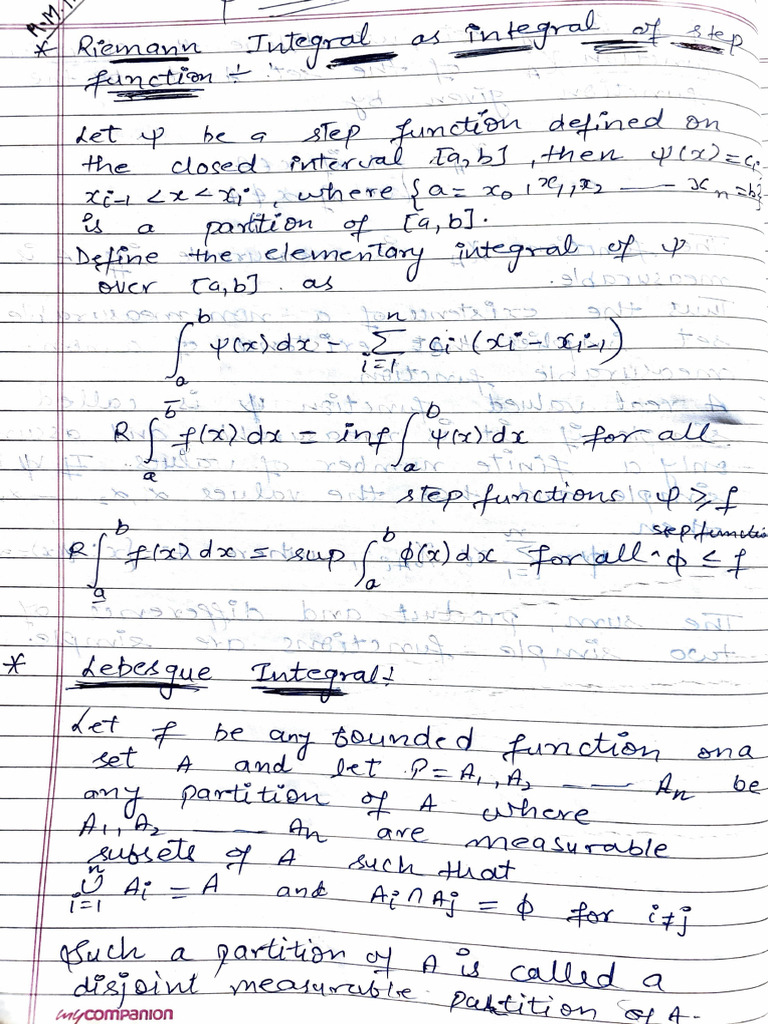 R.M.I.
* Riemann Integral as integral of step
function :-
Let ψ be a step function defined on
the closed interval [a,b], then ψ(x)=ci
xi-1 < x < xi, where {a = x0, x1, x2 —— xn = b}
is a partition of [a,b].
Define the elementary integral of ψ
over [a,b]. as
∫_a^b ψ(x)dx = Σ_{i=1}^n ci (xi - xi-1)
R ∫_a^b̄ f(x) dx = inf ∫_a^b ψ(x) dx for all
step functions ψ ≥ f
R ∫_a̲^b f(x) dx = sup ∫_a^b ϕ(x) dx for all ^ step function ϕ ≤ f
* Lebesgue Integral :-
Let f be any bounded function on a
set A and let P = A1, A2 —— An be
any partition of A where
A1, A2 —— An are measurable
subsets of A such that
∪_{i=1}^n Ai = A and Ai ∩ Aj = ϕ for i ≠ j
Such a partition of A is called a
disjoint measurable partition of A.
mycompanion